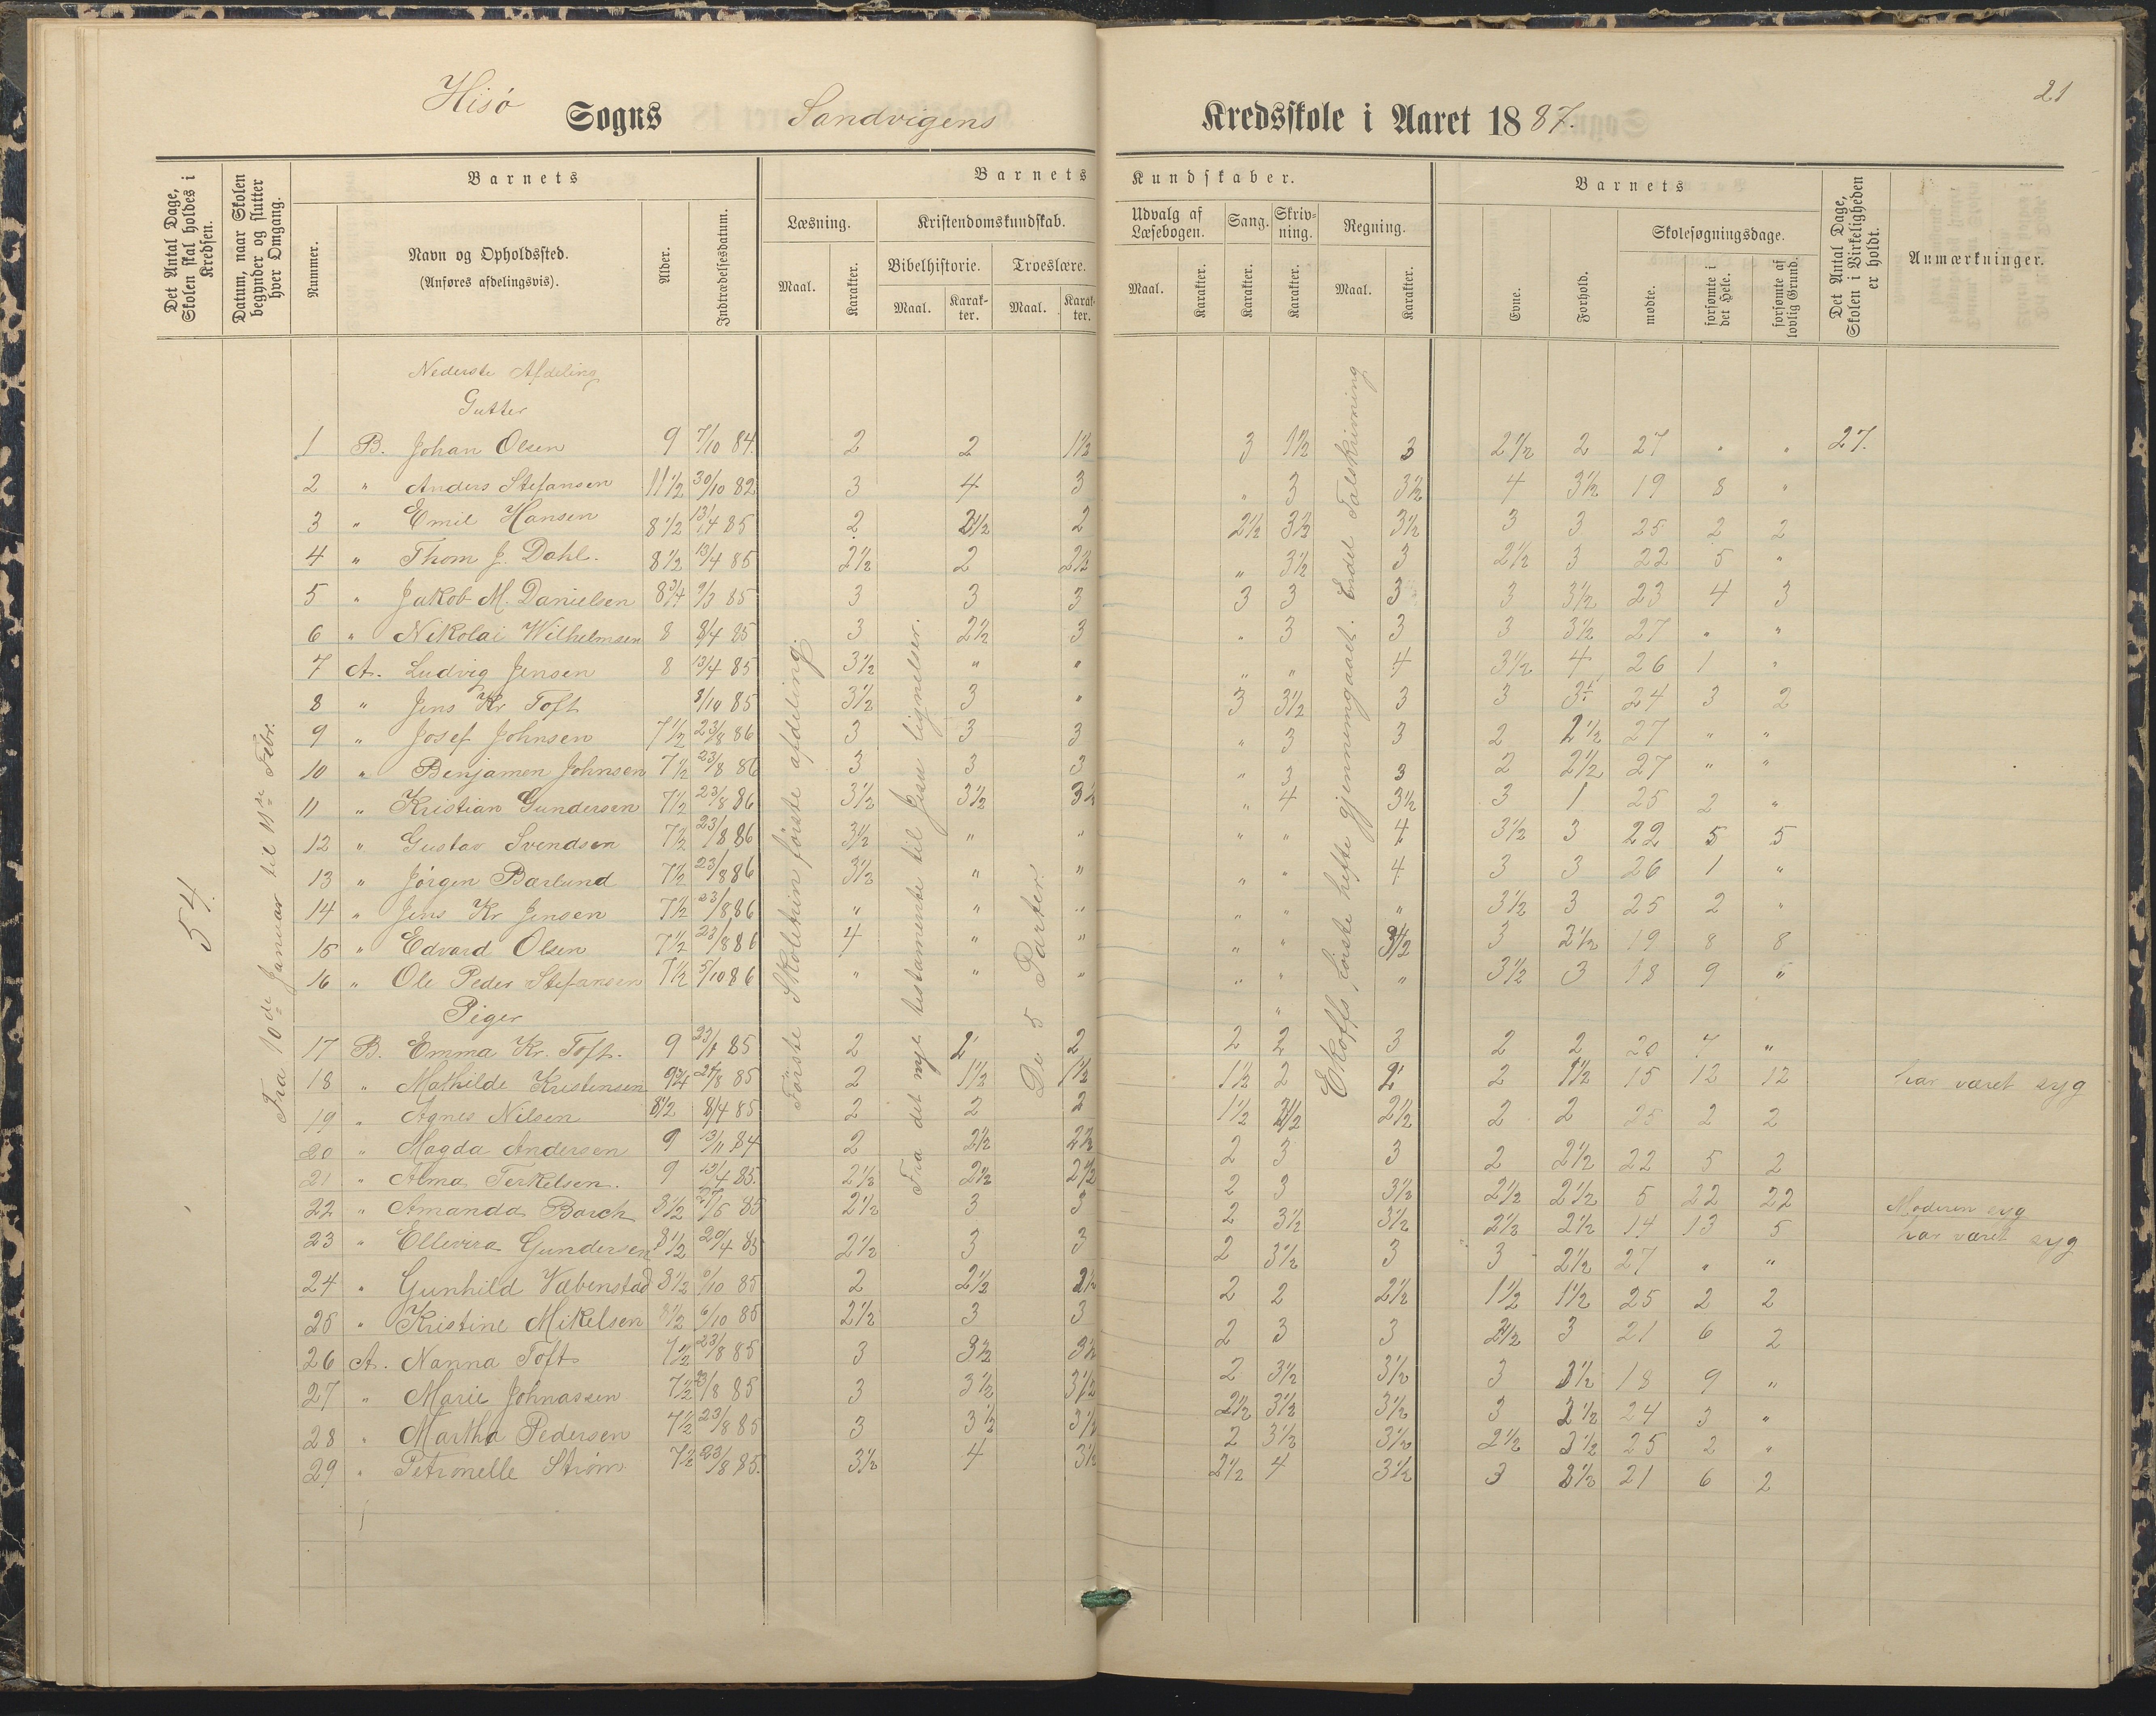 21
Hisö Sogns Sandvigens Kredsskole i Aaret 1887.
Det Antal Dage, Skolen skal holdes i Kredsen.
Datum, naar Skolen begynder og slutter hver Omgang.
Nummer.
Barnets
Navn og Opholdssted.
(Anføres afdelingsvis).
Alder.
Indtrædelsesdatum.
Barnets Kundskaber.
Læsning.
Maal.
Karakter.
Kristendomskundskab.
Bibelhistorie.
Maal.
Karakter.
Troeslære.
Maal.
Karakter.
Udvalg af Læsebogen.
Maal.
Karakter.
Sang.
Karakter.
Skrivning.
Karakter.
Regning.
Maal.
Karakter.
Barnets
Evne.
Forhold.
Skolesøgningsdage.
mødte.
forsømte i det Hele.
forsømte af lovlig Grund.
Det Antal Dage, Skolen i Virkeligheden er holdt.
Anmærkninger.
54.
Fra 10de Januar til 11te Febr.
Første Skoletrin første afdeling.
Fra det nye testamente til Jesu lignelser.
De 5 Parter.
Ekoffs, første hefte gjennemgaaet. Endel Talskrivning
Nederste Afdeling
Gutter
1 B. Johan Olsen 9 7/10 84. 2 2 1½ 3 1½ 3 2½ 2 27 " " 27.
2 " Anders Stefansen 11½ 30/10 82 3 4 3 " 3 3½ 4 3½ 19 8 "
3 " Emil Hansen 8½ 13/4 85 2 2½ 2 2½ 3½ 3½ 3 3 25 2 2
4 " Thom J. Dahl. 8½ 13/4 85 2½ 2 2½ " 3½ 3 2½ 3 22 5 "
5 " Jakob M. Danielsen 8¾ 9/3 85 3 3 3 3 3 3 3 3½ 23 4 3
6 " Nikolai Wilhelmsen 8 8/4 85 3 2½ 3 " 3 3 3 3½ 27 " "
7 A. Ludvig Jensen 8 13/4 85 3½ " " " " 4 3½ 4 26 1 "
8 " Jens Kr Toft 85 3½ 3 " 3 3½ 3 3 24 3 2
9 " Josef Johnsen 7½ 23/8 86 3 3 3 " 3 3 2 2½ 27 " "
10 " Benjamen Johnsen 7½ 23/8 86 3 3 3 " 3 3 2 2½ 27 " "
11 " Kristian Gundersen 7½ 23/8 86 3½ 3½ 3½ " 4 3½ 3 1 25 2 "
12 " Gustav Svendsen 7½ 23/8 86 3½ " " " " 4 3½ 3 22 5 5
13 " Jørgen Barlund 7½ 23/8 86 3½ " " " " 4 3 3 26 1 "
14 " Jens Kr Jensen 7½ 23/8 86 " " " " " " 3½ 3 25 2 "
15 " Edvard Olsen 7½ 23/8 86 4 " " " " 3½ 3 2½ 19 8 8
16 " Ole Peder Stefansen 7½ 5/10 86 " " " " " " 3½ 3 18 9 "
Piger
17 B. Emma Kr. Toft. 9 85 2 2 2 2 2 3 2 2 20 7 "
18 " Mathilde Kristensen 9¾ 85 2 1½ 1½ 1½ 2 2 2 1½ 15 12 12 har været syg
19 " Agnes Nilsen 8½ 8/4 85 2 2 2 1½ 2½ 2½ 2 2 25 2 2
20 " Magda Andersen 9 13/11 84 2 2½ 2½ 2 3 3 2 2½ 22 5 2
21 " Alma Terkelsen. 9 13/4 85. 2½ 2½ 2½ 2 3 3½ 2½ 2½ 5 22 22 Moderen syg
22 " Amanda Barch 8½ 85 2½ 3 3 2 3½ 3½ 2½ 2½ 14 13 5 har været syg
23 " Ellevira Gundersen 8½ 20/4 85 2½ 3 3 2 3½ 3 3 2½ 27 " "
24 " Gunhild Væbenstad 8½ 85 2 2½ 2½ 2 2 2½ 1½ 1½ 25 2 2
25 " Kristine Mikelsen 8½ 6/10 85 2½ 3 3 2 3 3 2½ 3 21 6 2
26 A. Nanna Toft 7½ 23/8 85 3 3½ 3½ 2 3½ 3½ 3 18 9 "
27 " Marie Johnassen 7½ 23/8 85 3 3½ 3½ 2½ 3½ 3½ 3 2½ 24 3 "
28 " Martha Pedersen 7½ 23/8 85 3 3½ 3½ 2 3½ 3½ 2½ 3½ 25 2 "
29 " Petronelle Strøm 7½ 23/8 85. 3½ 4 3½ 2½ 4 3½ 3 2½ 21 6 2